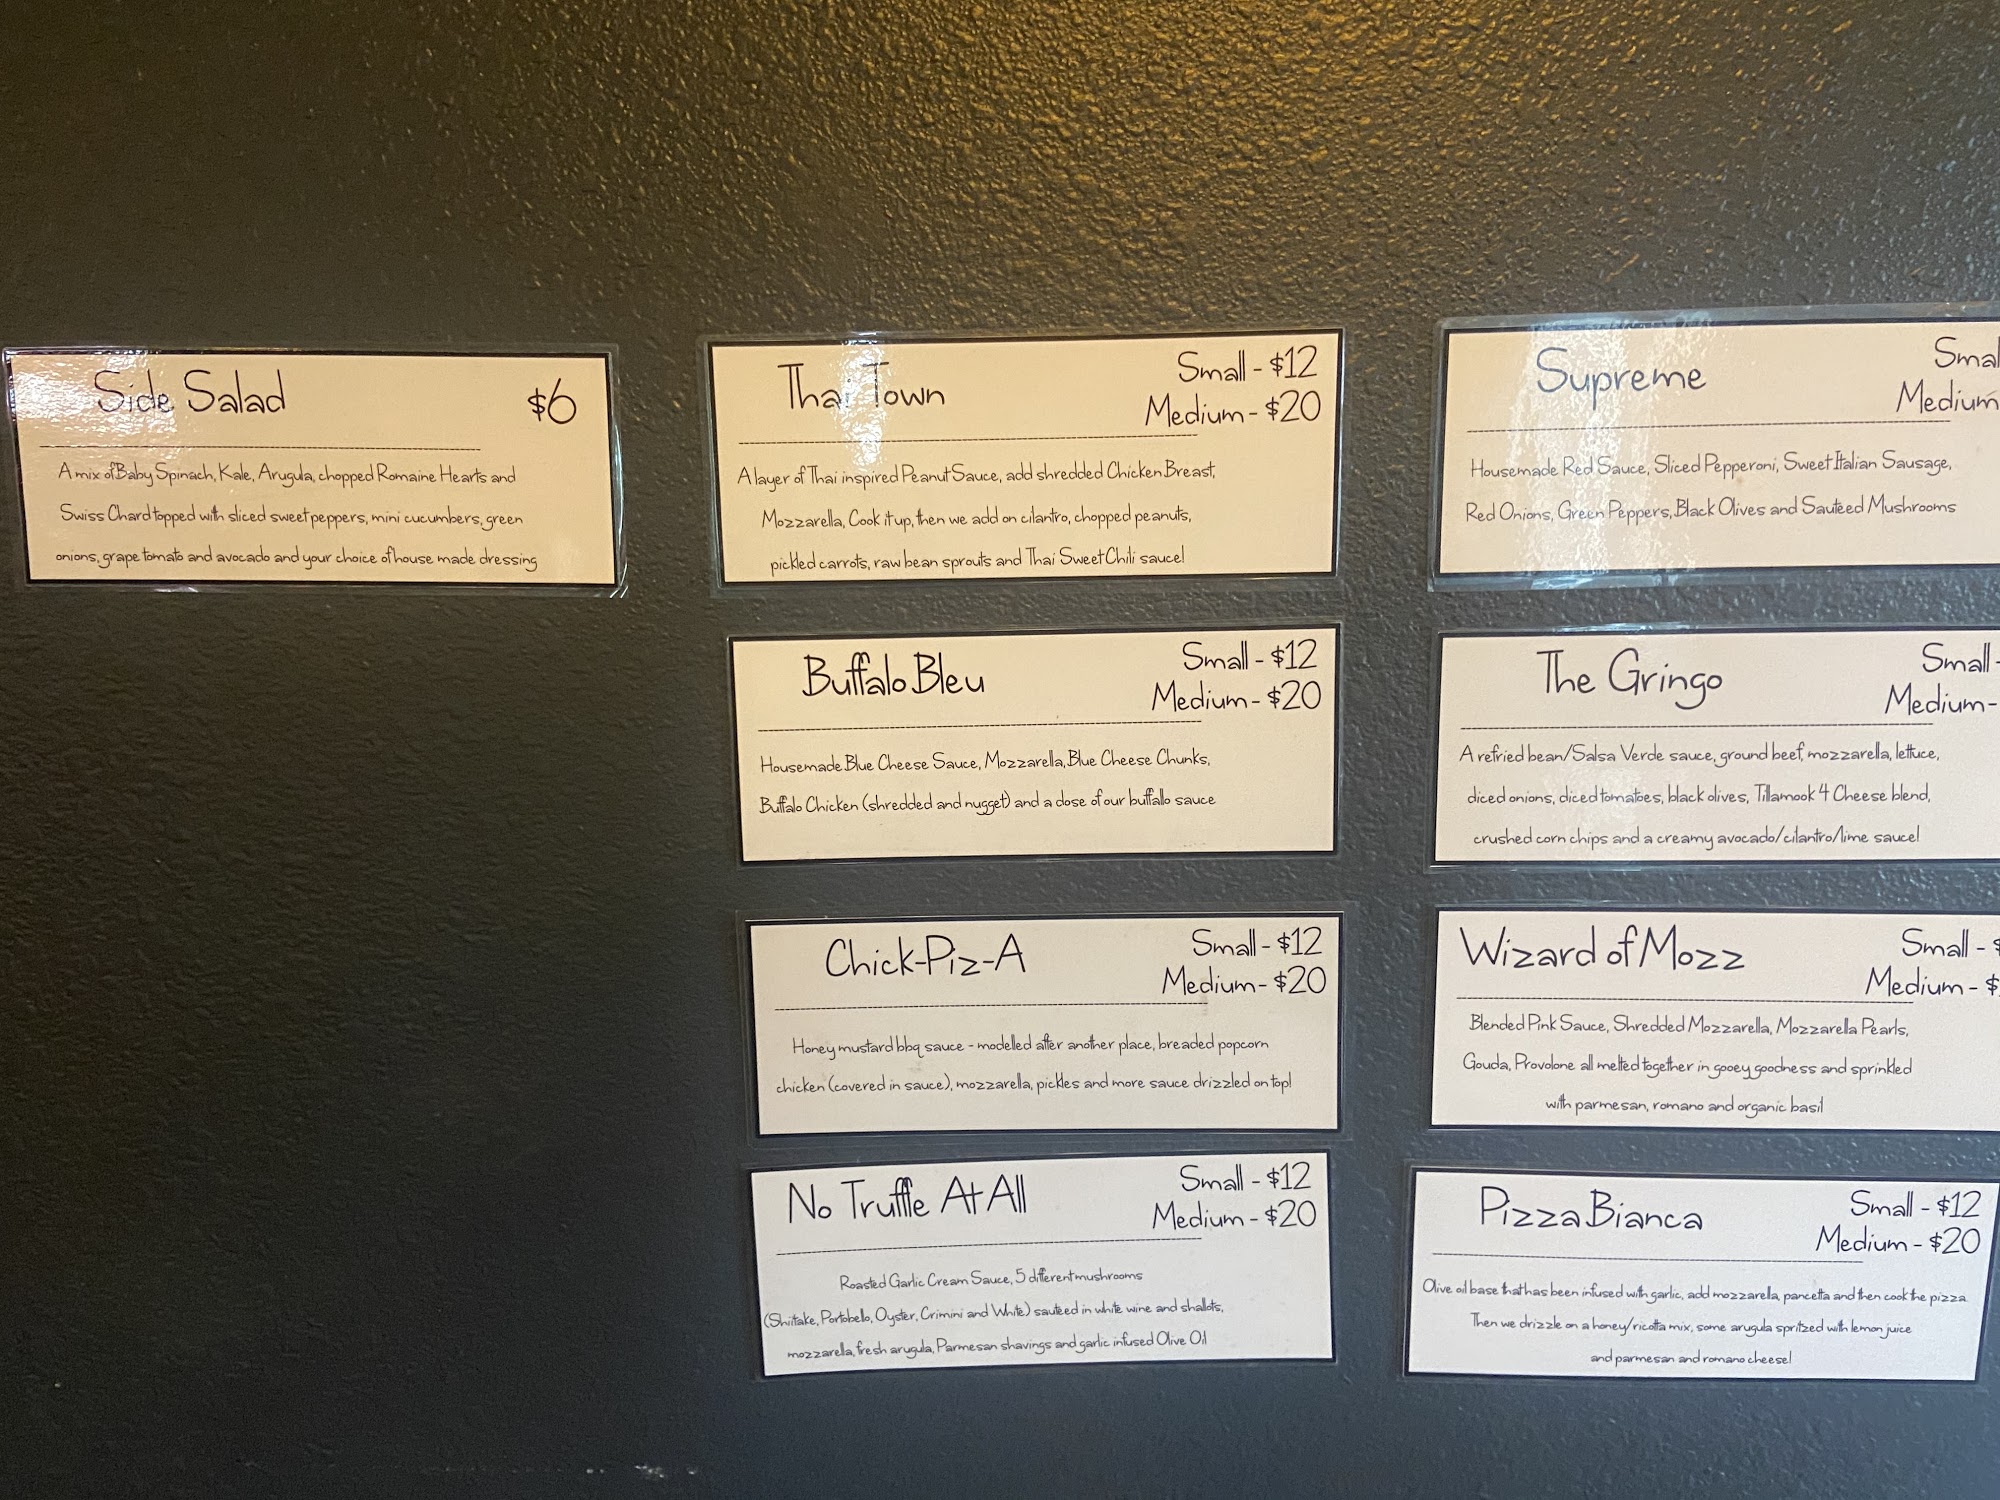 Side Salad
$6
A mix of Baby Spinach, Kale, Arugula, chopped Romaine Hearts and
Swiss Chard topped with sliced sweet peppers, mini cucumbers, green
onions, grape tomato and avocado and your choice of house made dressing
Thai Town
Small - $12
Medium - $20
A layer of Thai inspired Peanut Sauce, add shredded Chicken Breast,
Mozzarella, Cook it up, then we add on cilantro, chopped peanuts,
pickled carrots, raw bean sprouts and Thai Sweet Chili sauce!
Buffalo Bleu
Small - $12
Medium - $20
Housemade Blue Cheese Sauce, Mozzarella, Blue Cheese Chunks,
Buffalo Chicken (shredded and nugget) and a dose of our buffallo sauce
Chick-Piz-A
Small - $12
Medium - $20
Honey mustard bbq sauce - modelled after another place, breaded popcorn
chicken (covered in sauce), mozzarella, pickles and more sauce drizzled on top!
No Truffle At All
Small - $12
Medium - $20
Roasted Garlic Cream Sauce, 5 different mushrooms
(Shiitake, Portobello, Oyster, Crimini and White) sautéed in white wine and shallots,
mozzarella, fresh arugula, Parmesan shavings and garlic infused Olive Oil
Supreme
Smal
Medium
Housemade Red Sauce, Sliced Pepperoni, Sweet Italian Sausage,
Red Onions, Green Peppers, Black Olives and Sautéed Mushrooms
The Gringo
Small -
Medium -
A refried bean/Salsa Verde sauce, ground beef, mozzarella, lettuce,
diced onions, diced tomatoes, black olives, Tillamook 4 Cheese blend,
crushed corn chips and a creamy avocado/cilantro/lime sauce!
Wizard of Mozz
Small - $
Medium - $
Blended Pink Sauce, Shredded Mozzarella, Mozzarella Pearls,
Gouda, Provolone all melted together in gooey goodness and sprinkled
with parmesan, romano and organic basil
Pizza Bianca
Small - $12
Medium - $20
Olive oil base that has been infused with garlic, add mozzarella, pancetta and then cook the pizza.
Then we drizzle on a honey/ricotta mix, some arugula spritzed with lemon juice
and parmesan and romano cheese!